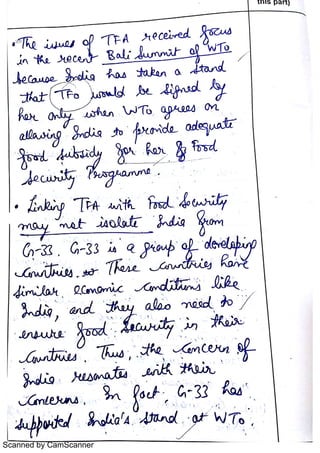 this part)
• The issues of TFA received focus
in the recent Bali Summit of WTo
because India has taken a stand
that TFo would be signed by
her only when WTo agrees on
allowing India to provide adequate
food subsidy for her Food
Security Programme.
• Linking TFA with Food Security
may not isolate India from
G-33. G-33 is a group of developing
countries. These countries have
similar economic conditions like
India, and they also need to
ensure food security in their
Countries. Thus, the concern of
India resonates with their
concerns. In fact, G-33 has
supported India's stand at WTo.
Scanned by CamScanner